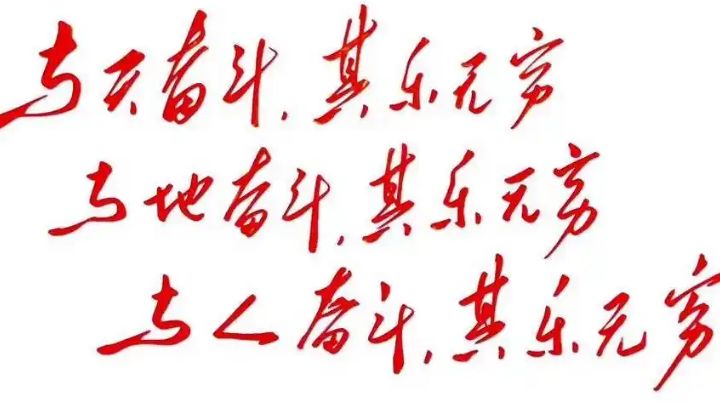 与天奋斗，其乐无穷
与地奋斗，其乐无穷
与人奋斗，其乐无穷